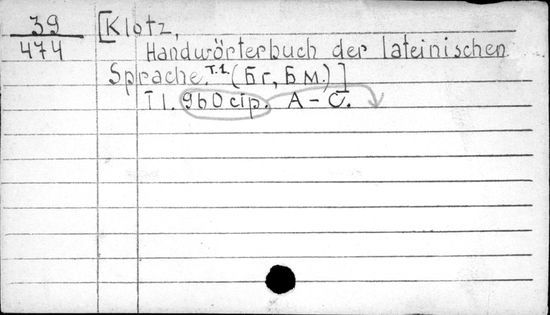 39
474
[Klotz,
Handwörterbuch der lateinischen
Sprache. T.1 (Б г, Б м.)]
T 1. 960 стр. A – C.